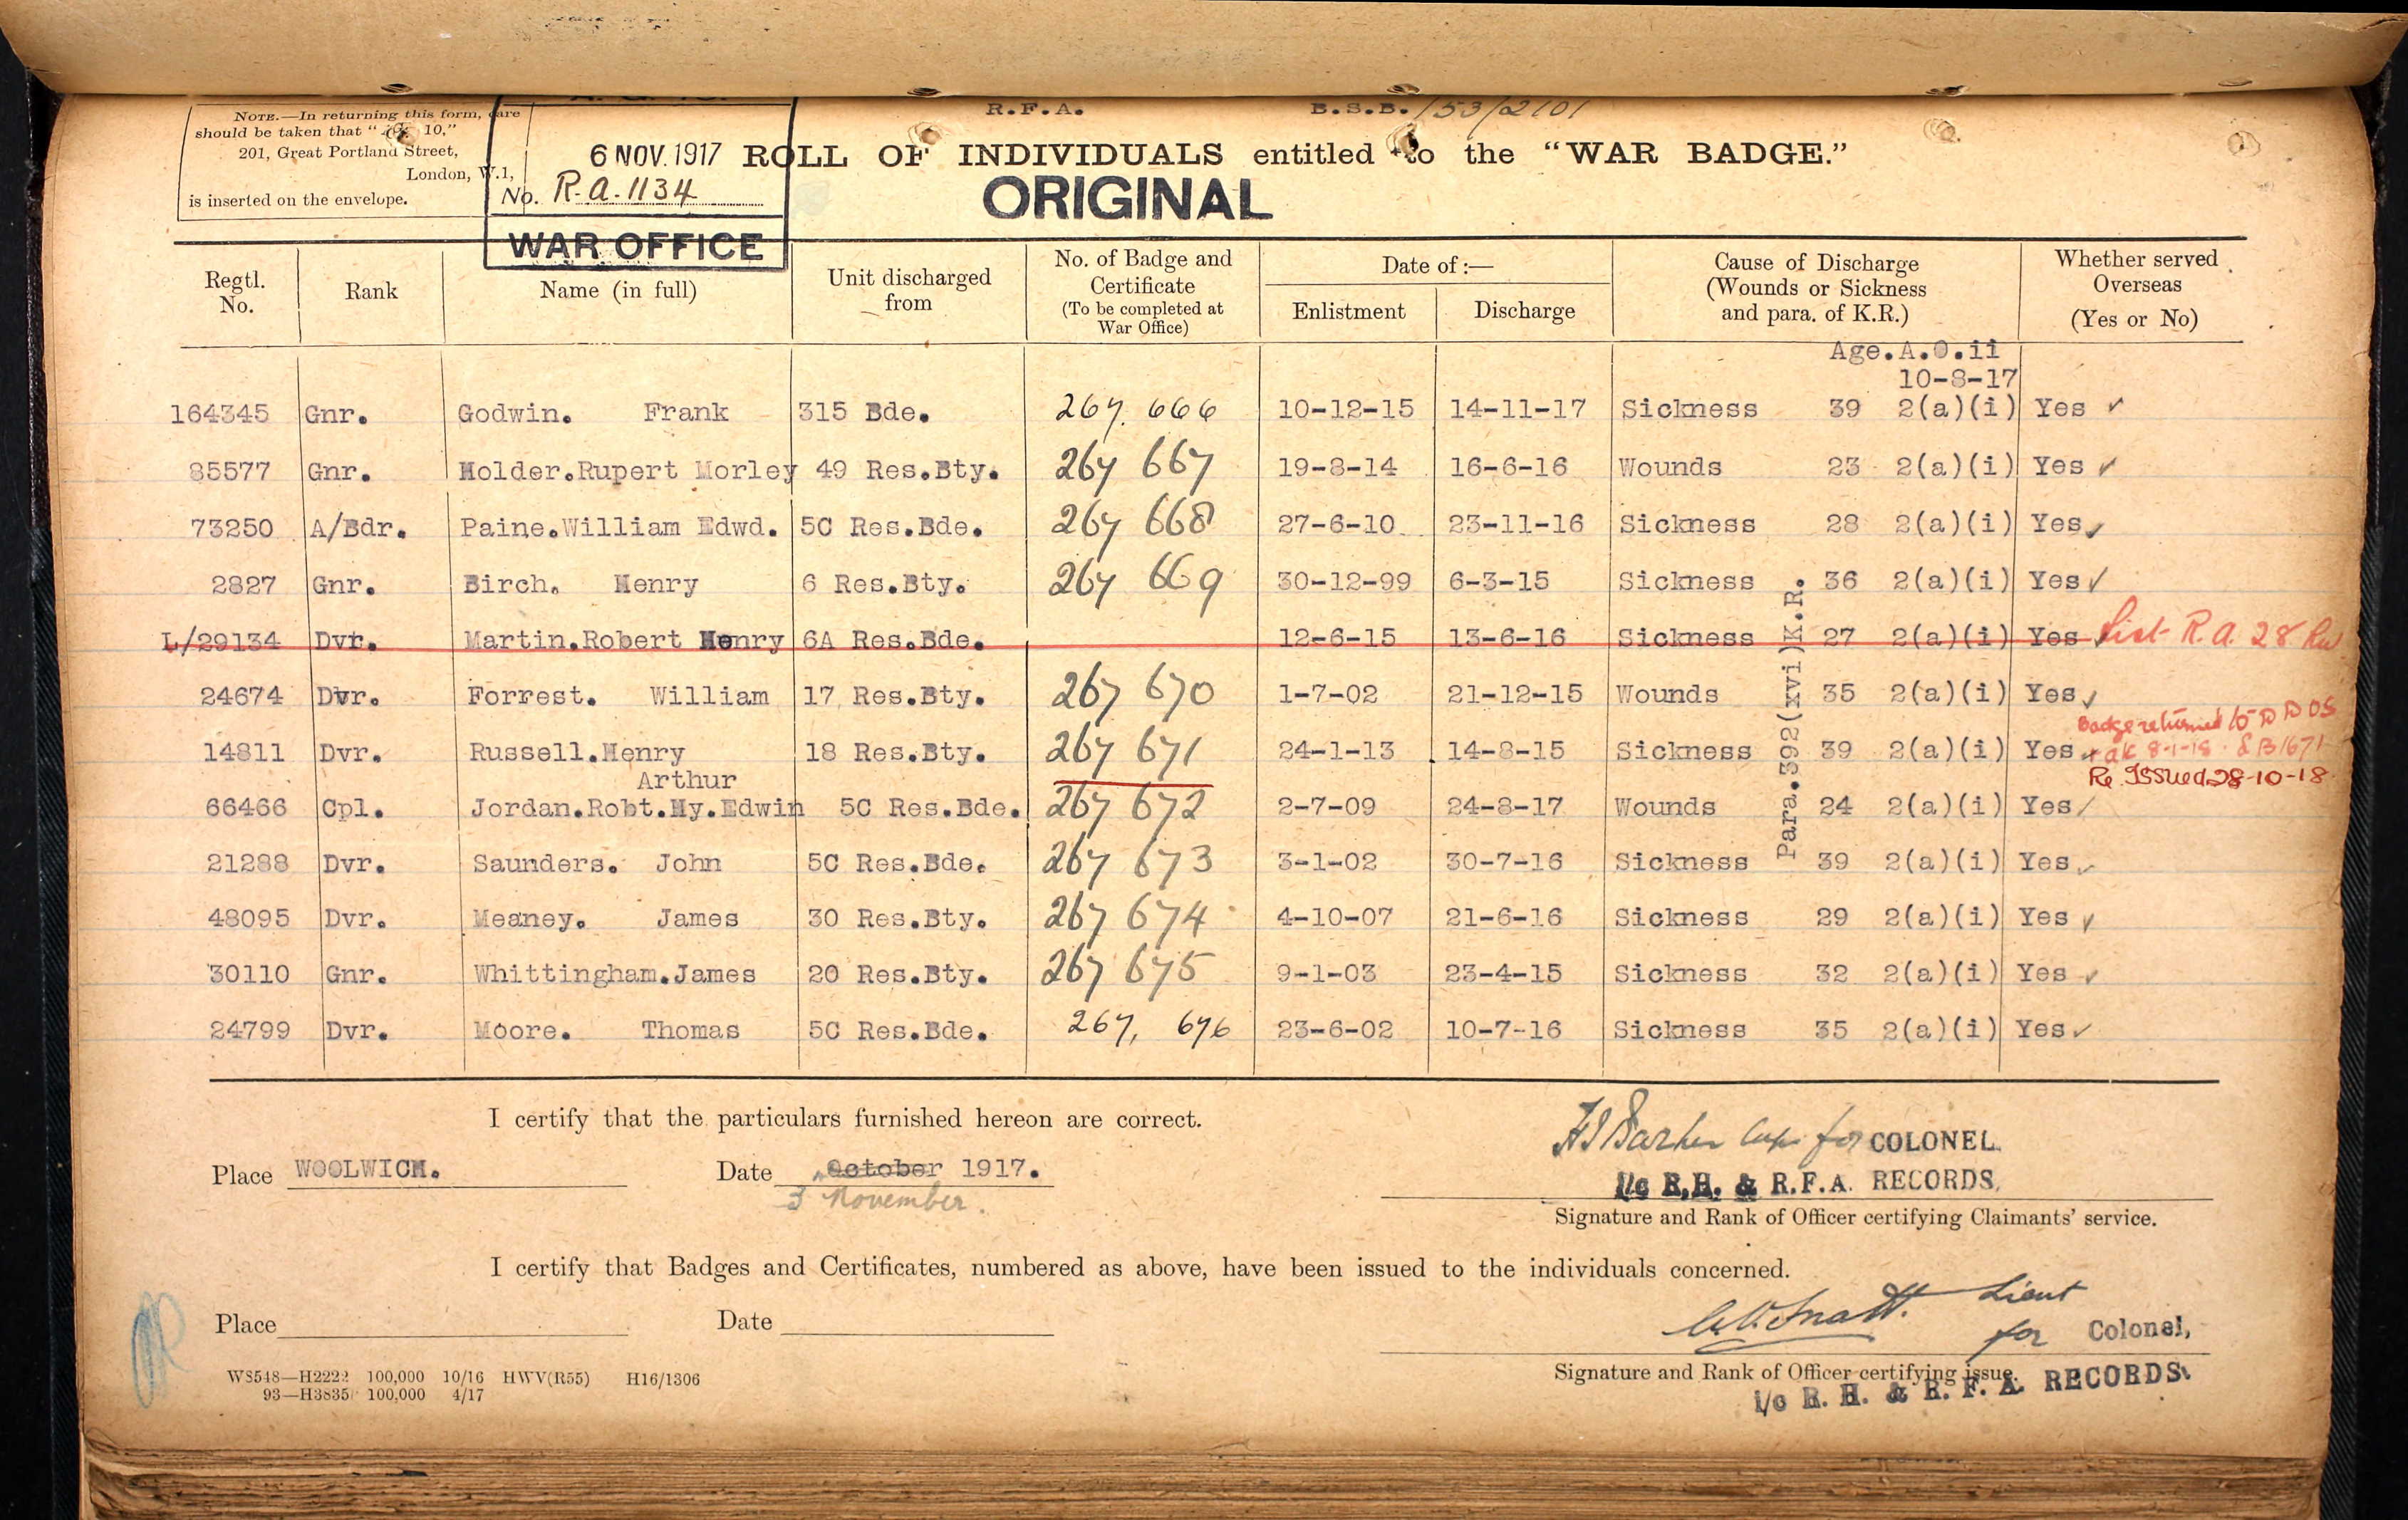 R.F.A. B.S.B./53/2101
NOTE.—In returning this form, care
should be taken that " 10,"
201, Great Portland Street,
London, W.1,
is inserted on the envelope.
6 NOV. 1917
No. R.A. 1134
WAR OFFICE
ROLL OF INDIVIDUALS entitled to the "WAR BADGE."
ORIGINAL
Regtl. No. Rank Name (in full) Unit discharged from No. of Badge and Certificate (To be completed at War Office) Date of:— Enlistment Discharge Cause of Discharge (Wounds or Sickness and para. of K.R.) Whether served Overseas (Yes or No)
Age. A.O.ii
10-8-17
164345 Gnr. Godwin. Frank 315 Bde. 267. 666 10-12-15 14-11-17 Sickness 39 2(a)(i) Yes ✓
85577 Gnr. Holder.Rupert Morley 49 Res.Bty. 267 667 19-8-14 16-6-16 Wounds 23 2(a)(i) Yes ✓
73250 A/Bdr. Paine.William Edwd. 5C Res.Bde. 267 668 27-6-10 23-11-16 Sickness 28 2(a)(i) Yes ✓
2827 Gnr. Birch. Henry 6 Res.Bty. 267 669 30-12-99 6-3-15 Sickness 36 2(a)(i) Yes ✓
L/29134 Dvr. Martin.Robert Henry 6A Res.Bde. 12-6-15 13-6-16 Sickness 27 2(a)(i) Yes List R.A. 28
24674 Dvr. Forrest. William 17 Res.Bty. 267 670 1-7-02 21-12-15 Wounds 35 2(a)(i) Yes ✓
Badge returned to D D O S
14811 Dvr. Russell.Henry 18 Res.Bty. 267 671 24-1-13 14-8-15 Sickness 39 2(a)(i) Yes 8-1-18. SB1671
Arthur Re Issued 28-10-18
66466 Cpl. Jordan.Robt.Hy.Edwin 5C Res.Bde. 267 672 2-7-09 24-8-17 Wounds 24 2(a)(i) Yes ✓
21288 Dvr. Saunders. John 5C Res.Bde. 267 673 3-1-02 30-7-16 Sickness 39 2(a)(i) Yes ✓
48095 Dvr. Meaney. James 30 Res.Bty. 267 674 4-10-07 21-6-16 Sickness 29 2(a)(i) Yes ✓
30110 Gnr. Whittingham.James 20 Res.Bty. 267 675 9-1-03 23-4-15 Sickness 32 2(a)(i) Yes ✓
24799 Dvr. Moore. Thomas 5C Res.Bde. 267, 676 23-6-02 10-7-16 Sickness 35 2(a)(i) Yes ✓
Para.392(xvi)K.R.
I certify that the particulars furnished hereon are correct.
Barker for COLONEL.
Place WOOLWICH. Date October 1917.
3 November.
I/c R.H. & R.F.A. RECORDS.
Signature and Rank of Officer certifying Claimants' service.
I certify that Badges and Certificates, numbered as above, have been issued to the individuals concerned.
Lieut
Place Date
for Colonel,
Signature and Rank of Officer certifying issue.
I/c R. H. & R. F. A. RECORDS.
W8548—H2222 100,000 10/16 HWV(R55) H16/1306
93—H3835 100,000 4/17